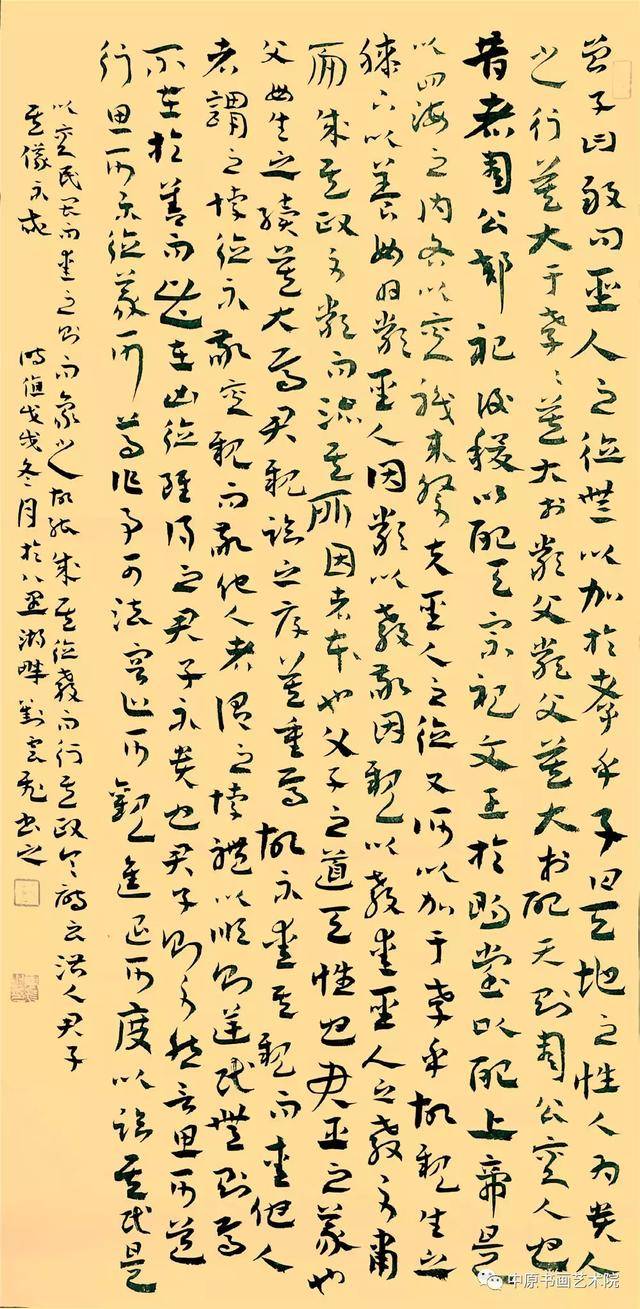 曾子曰敢问聖人之德無以加於孝乎子曰天地之性人为贵人
之行莫大于孝〻莫大於嚴父嚴父莫大於配天则周公其人也
昔者周公郊祀后稷以配天宗祀文王於明堂以配上帝是
以四海之内各以其職来祭夫聖人之德又何以加于孝乎故親生之
膝下以養母日嚴聖人因嚴以教敬因親以教愛聖人之教不肅
而成其政不嚴而治其所因者本也父子之道天性也君臣之義也
父母生之續莫大焉君親临之厚莫重焉故不愛其親而愛他人
者謂之悖德不敬其親而敬他人者謂之悖禮以順则逆民無则焉
不在於善而皆在凶德雖得之君子不贵也君子则不然言思可道
行思可樂德義可尊作事可法容止可觀進退可度以临其民是
以其民畏而愛之则而象之故能成其德教而行其政令詩云淑人君子
其儀不忒 時值戊戌冬月於八里湖畔劉雲飛书之
中原书画艺术院